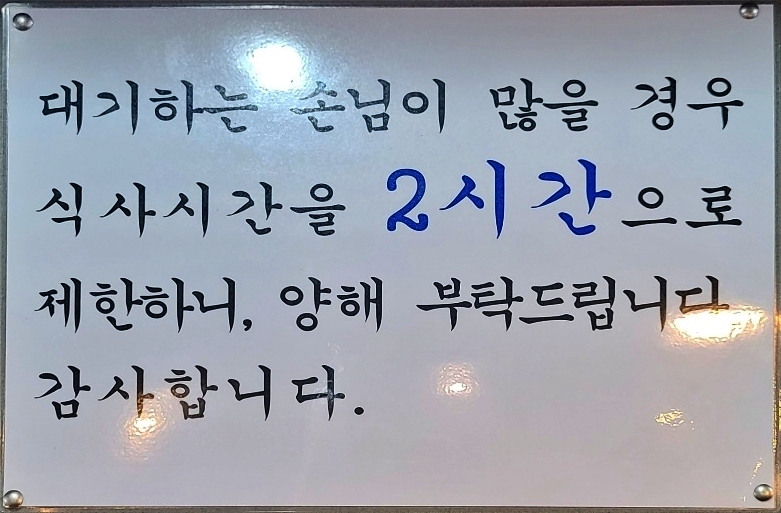 대기하는 손님이 많을 경우
식사시간을 2시간으로
제한하니, 양해 부탁드립니다
감사합니다.